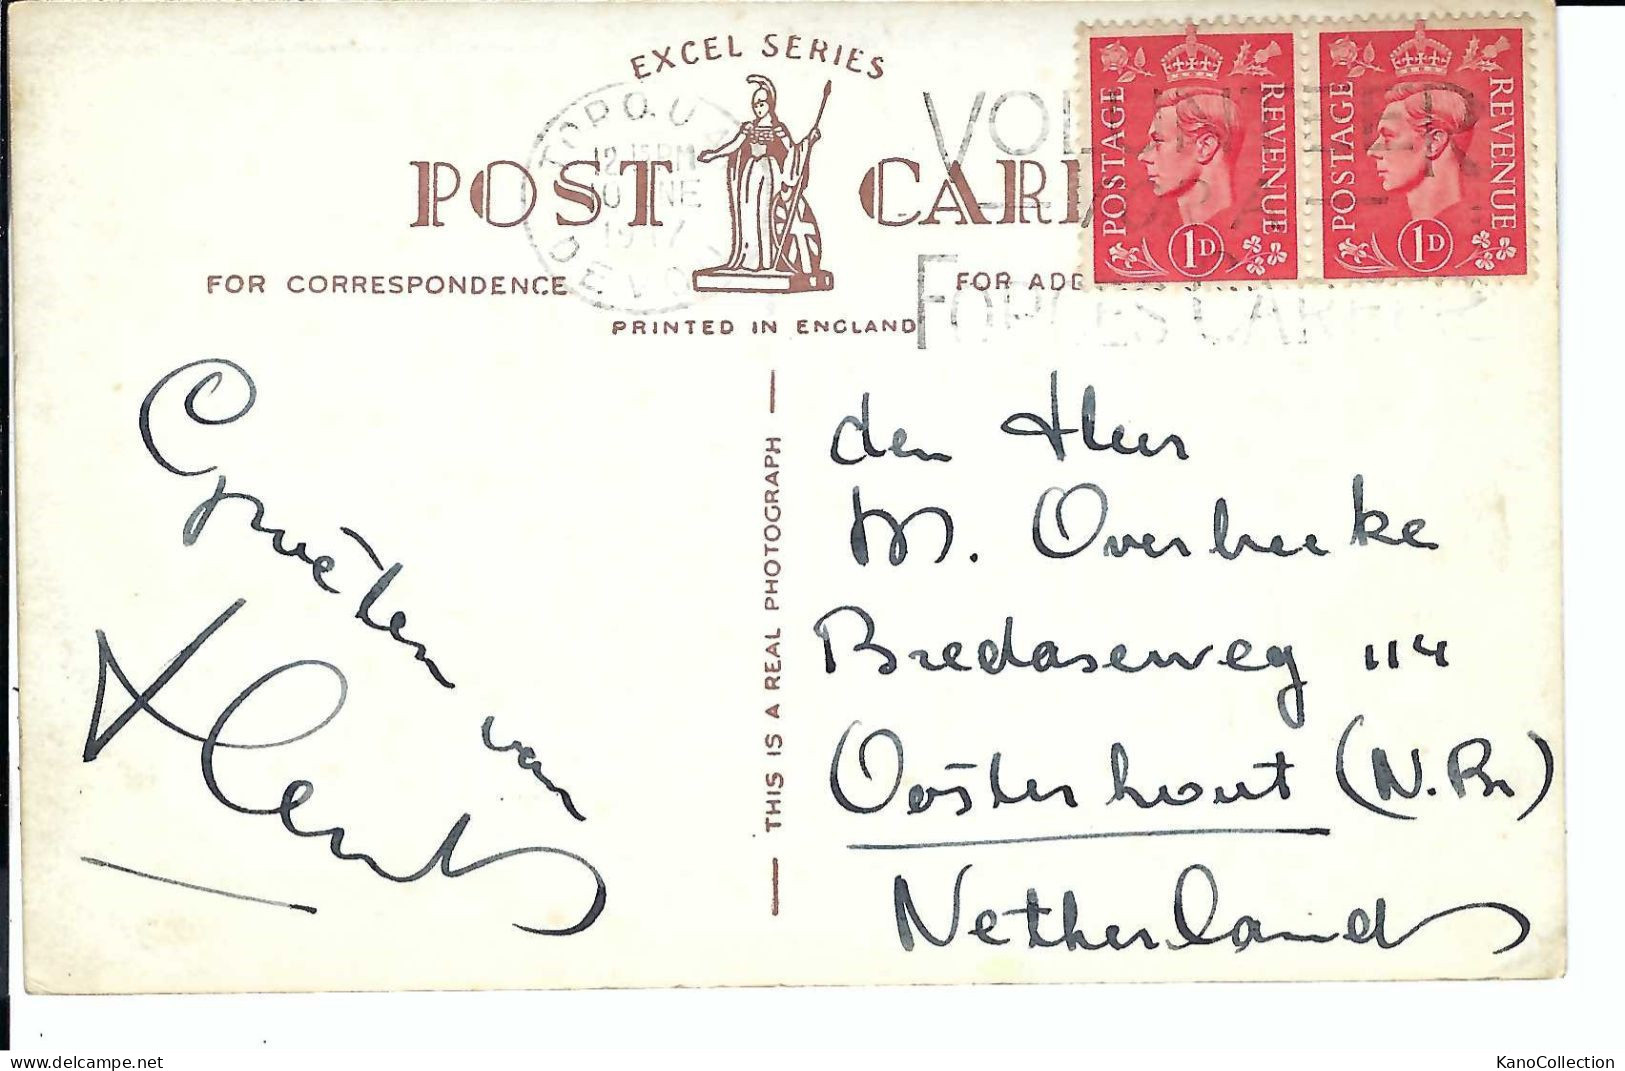 EXCEL SERIES
POST CARD
FOR CORRESPONDENCE
FOR ADD
PRINTED IN ENGLAND
THIS IS A REAL PHOTOGRAPH
POSTAGE REVENUE
1D
POSTAGE REVENUE
1D
TORQUAY
12 15 PM
JNE
1947
DEVON
VOLUNTEER
FOR A
FORCES CAREER
Groeten van
den Heer
M. Overbeeke
Bredaseweg 114
Oosterhout (N.Br)
Netherlands
KanoCollection